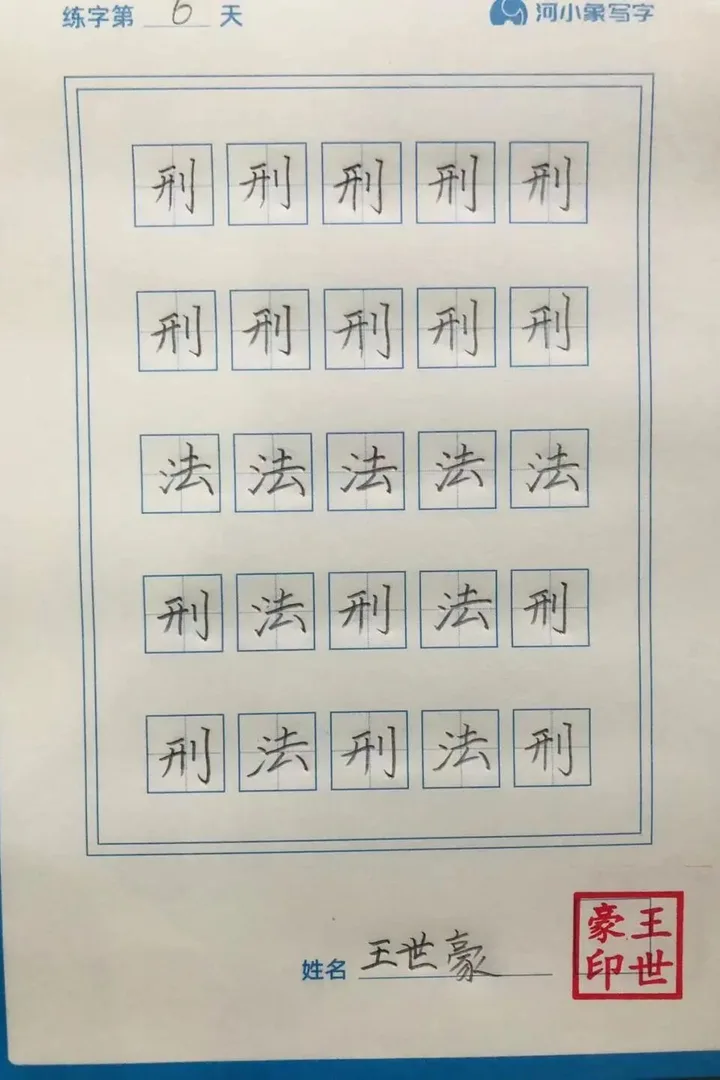 练字第 6 天 河小象写字
刑 刑 刑 刑 刑
刑 刑 刑 刑 刑
法 法 法 法 法
刑 法 刑 法 刑
刑 法 刑 法 刑
姓名 王世豪
王世豪印